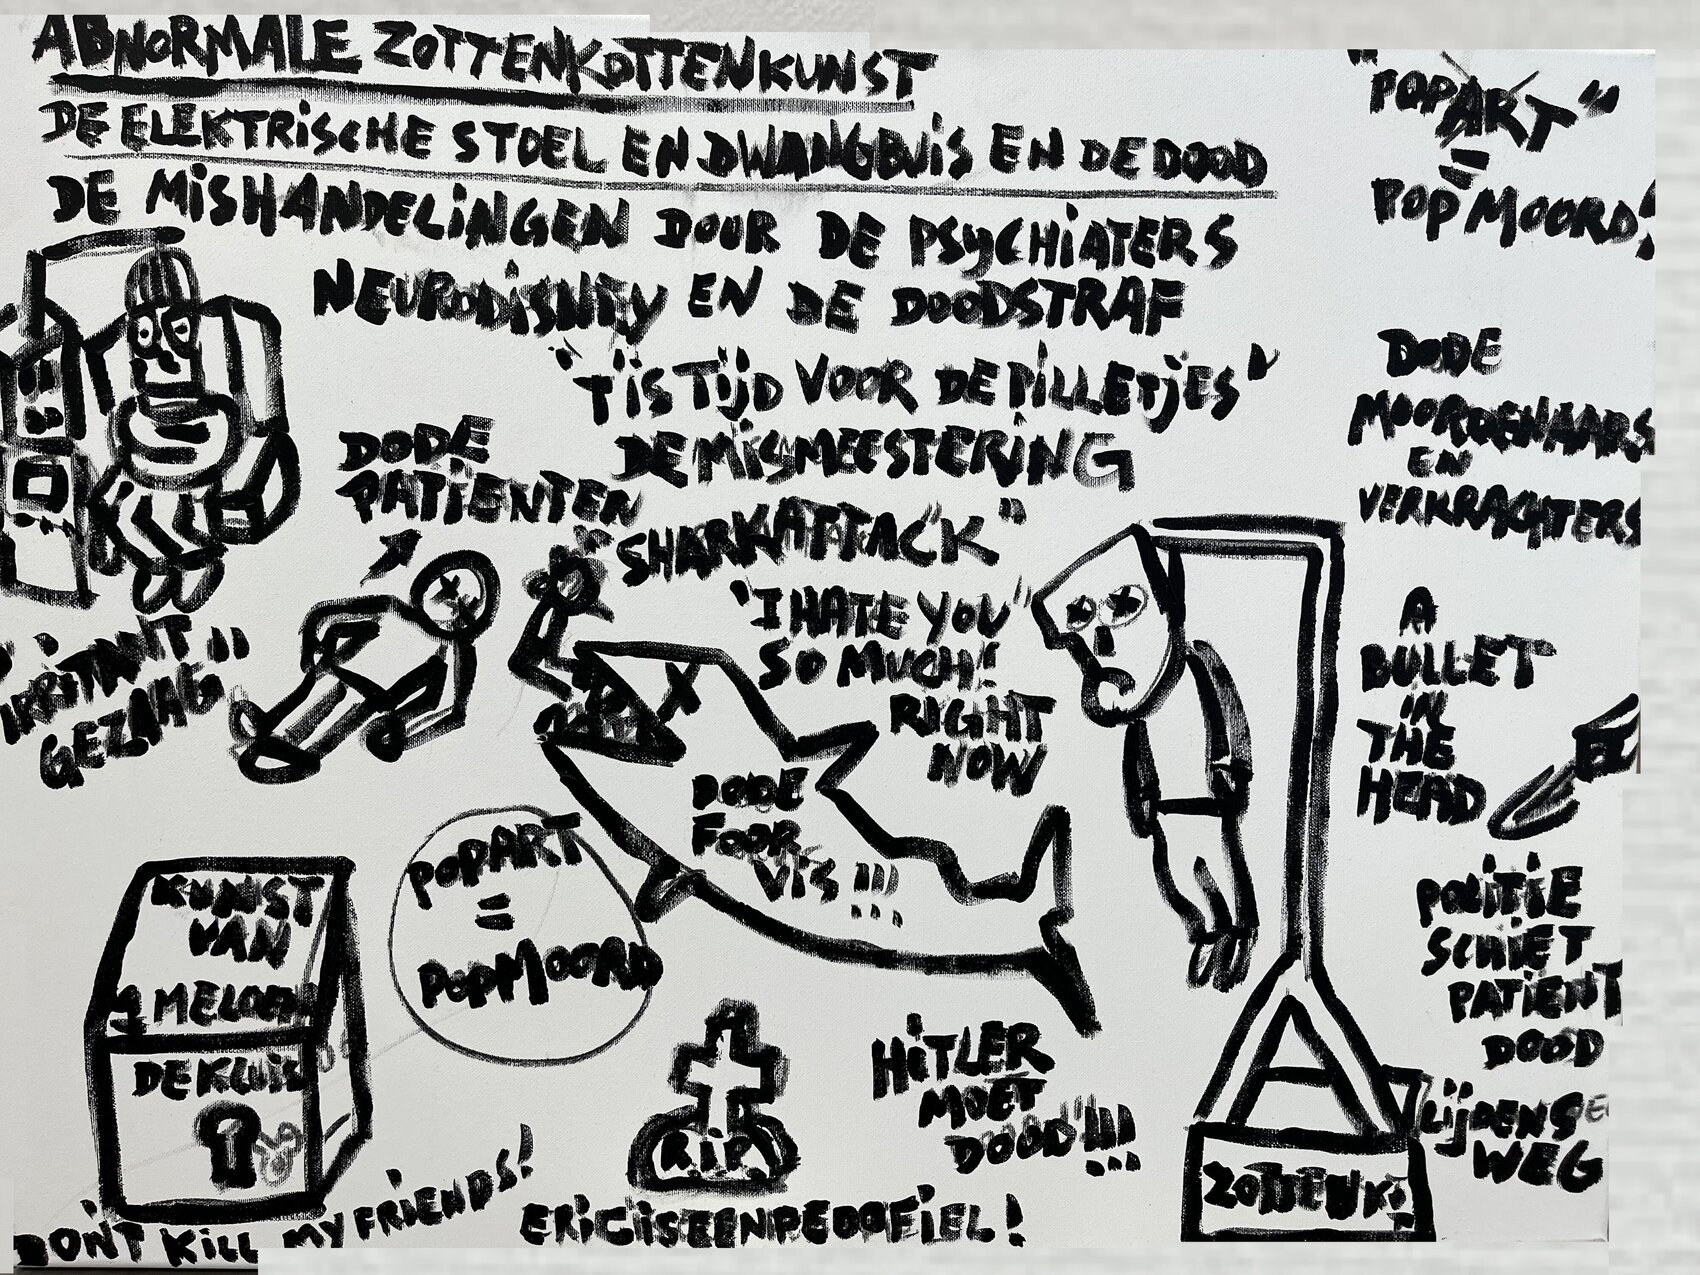 ABNORMALE ZOTTENKOTTENKUNST
DE ELEKTRISCHE STOEL EN DWANGBUIS EN DE DOOD
DE MISHANDELINGEN DOOR DE PSYCHIATERS
NEURODISNEY EN DE DOODSTRAF
"T IS TIJD VOOR DE PILLETJES"
DE MISMEESTERING
"POPART"
=
POPMOORD!
DODE
MOORDENAARS
EN
VERKRACHTERS
DODE
PATIENTEN
"SHARKATTACK"
"I HATE YOU
SO MUCH!!
RIGHT
NOW
"IRRITANT
GEZANG"
A
BULLET
IN
THE
HEAD
DODE
FOOR
VIS!!!
POPART
=
POPMOORD
POLITIE
SCHIET
PATIENT
DOOD
KUNST
VAN
DE KLUIS
R.I.P.
HITLER
MOET
DOOD!!!
LIJDENS
WEG
DON'T KILL MY FRIENDS!
ERIC IS EEN PEDOFIEL!